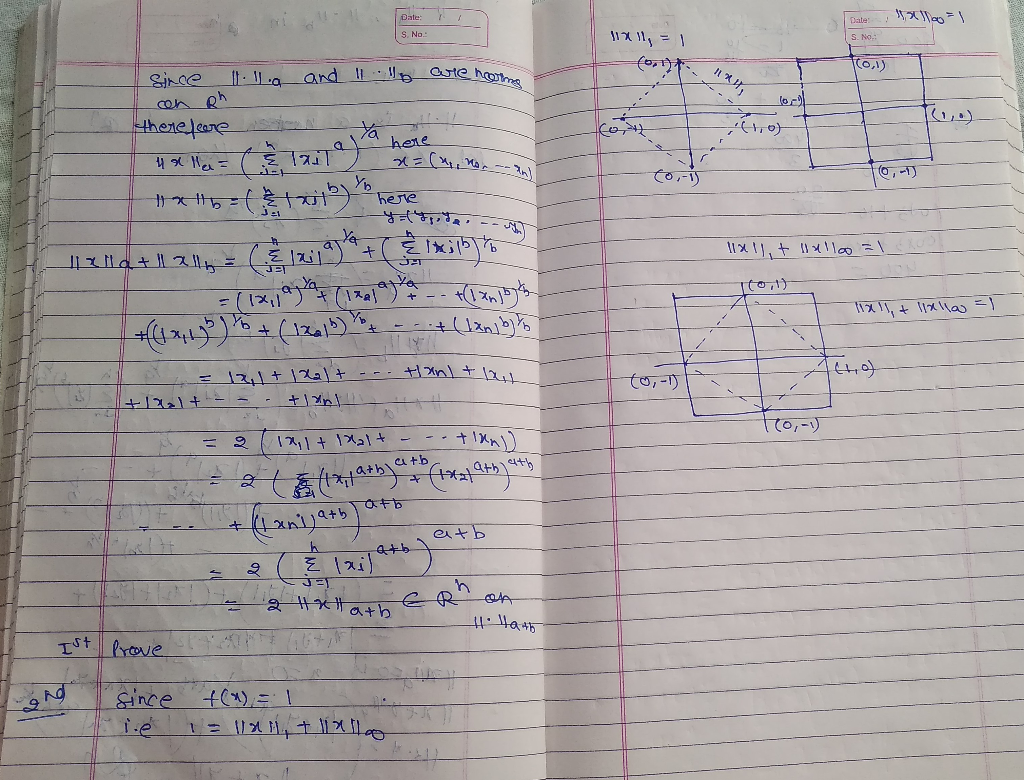 Date:
S. No.:
Since ||·||a and ||·||b are norms
on Rⁿ
therefore
||x||a = (Σⁿⱼ₌₁ |xj|ᵃ)^1/a here
x = (x₁, x₂, --- xn)
||x||b = (Σⁿⱼ₌₁ |xj|ᵇ)^1/b here
y = (y₁, y₂, --- yn)
||x||a + ||x||b = (Σⁿⱼ₌₁ |xj|ᵃ)^1/a + (Σⁿⱼ₌₁ |xj|ᵇ)^1/b
= (|x₁|ᵃ)^1/a + (|x₂|ᵃ)^1/a + -- + (|xn|ᵇ)^1/b
+ ((|x₁|)ᵇ)^1/b + (|x₂|ᵇ)^1/b + --- + (|xn|ᵇ)^1/b
= |x₁| + |x₂| + --- + |xn| + |x₁|
+ |x₂| + --- + |xn|
= 2 (|x₁| + |x₂| + --- + |xn|)
= 2 ( (|x₁|^a+b)^a+b + (|x₂|^a+b)^a+b
--- + (|xn|)^a+b)^a+b
= 2 (Σⁿⱼ₌₁ |xj|^a+b)^a+b
= 2 ||x||a+b ∈ Rⁿ on
||·||a+b
Ist Prove
2nd Since f(x) = 1
i.e 1 = ||x||₁ + ||x||∞
Date:
S. No.:
||x||₁ = 1
(0,1)
||x||₁
(0,-1)
(1,0)
(0,-1)
||x||∞ = 1
(0,1)
(0,-1)
(1,0)
(0,-1)
||x||₁ + ||x||∞ = 1
(0,1)
||x||₁ + ||x||∞ = 1
(0,-1)
(1,0)
(0,-1)